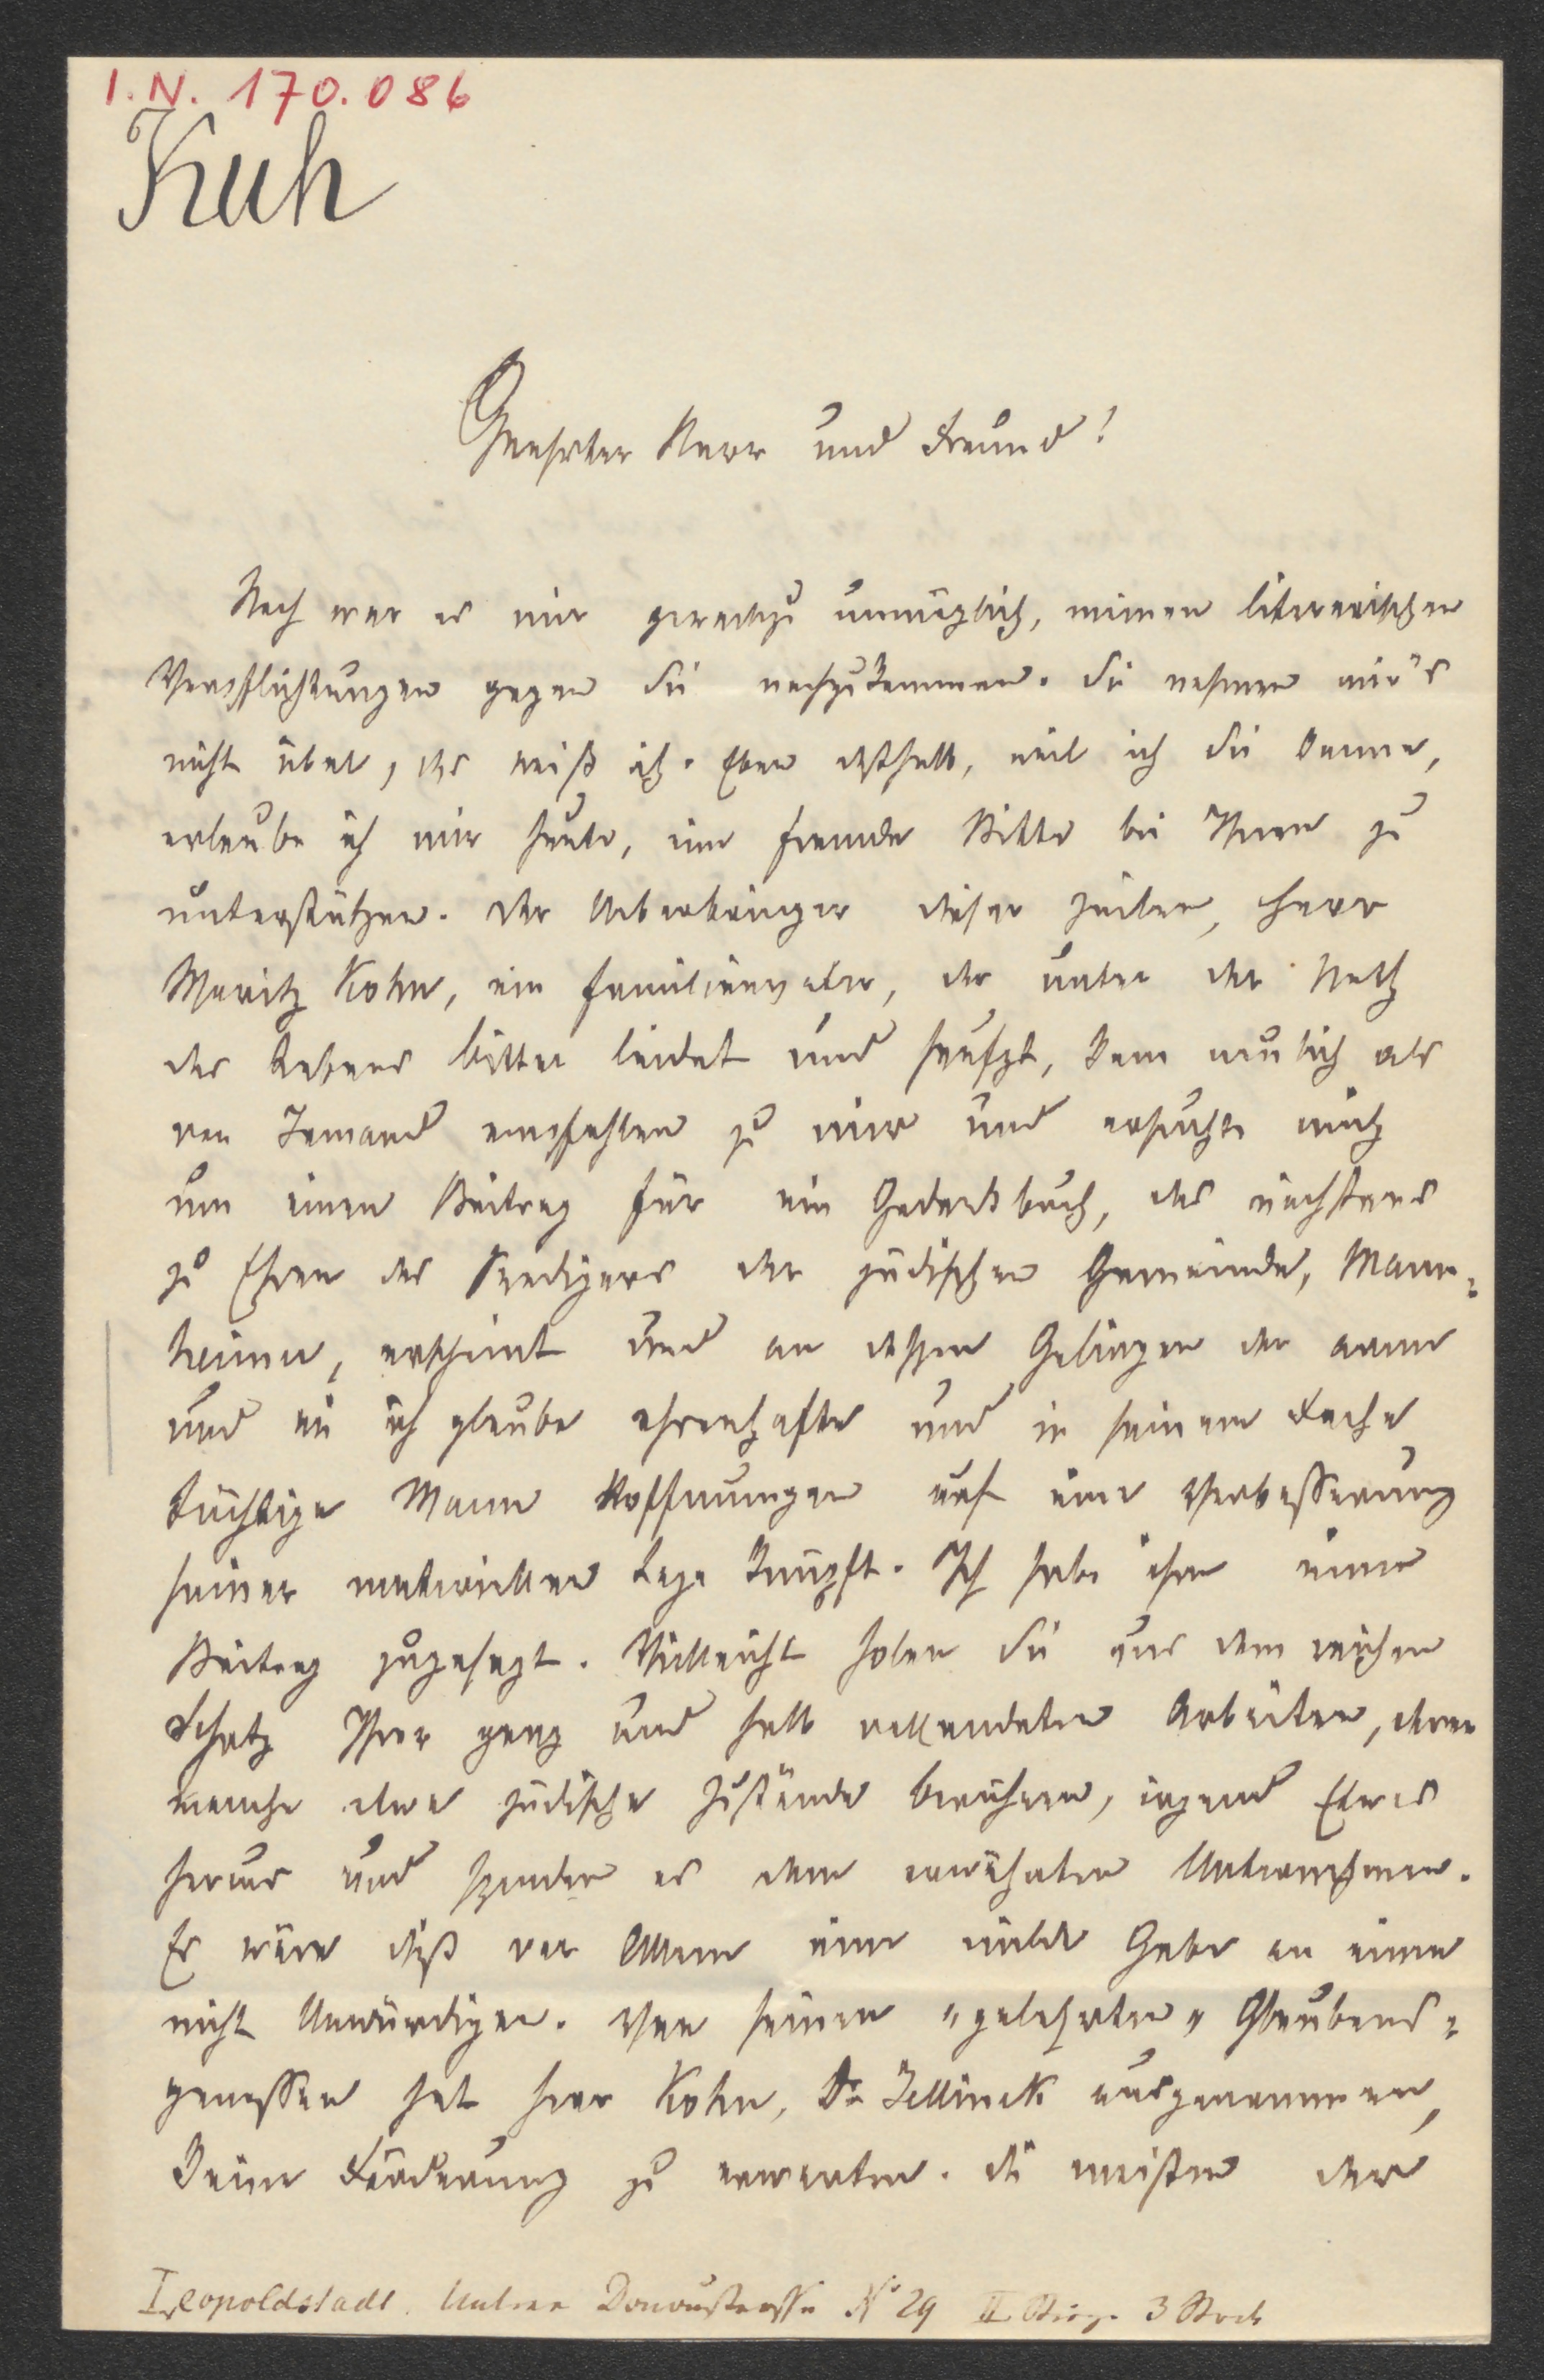 I.N. 170.086
Kuh
Geehrter Herr und Freund!
Noch war es mir geradezu unmöglich, meinen literarischen
Verpflichtungen gegen Sie nachzukommen. Sie nehmen mir's
nicht übel, das weiß ich. Eben deßhalb, weil ich Sie kenne,
erlaube ich mir heute, eine fremde Bitte bei Ihnen zu
unterstützen. Der Ueberbringer dieser Zeilen, Herr
Moritz Kohn, ein Familienvater, der unter der Noth
des Lebens bitter leidet und seufzt, kam neulich als
von Jemand empfohlen zu mir und ersuchte mich
um einen Beitrag für ein Gedenkbuch, das nächstens
zu Ehren des Predigers der jüdischen Gemeinde, Mann-
heimer, erscheint und an dessen Gelingen der arme
und wie ich glaube ehrenhafte und in seinem Fache
tüchtige Mann Hoffnungen auf eine Verbesserung
seiner materiellen Lage knüpft. Ich habe ihm einen
Beitrag zugesagt. Vielleicht holen Sie aus dem reichen
Schatz Ihrer ganz und halb vollendeten Arbeiten, deren
manche etwa jüdische Zustände berühren, irgend Etwas
heraus und spenden es dem erwähnten Unternehmen.
Es wäre dieß vor Allem eine milde Gabe an einen
nicht Unwürdigen. Von seinen "gelehrten" Glaubens-
genossen hat Herr Kohn, Dr Jellinek ausgenommen,
keine Förderung zu erwarten. Die meisten der
Leopoldstadt. Untere Donaustrasse No 29 II Stiege 3 Stock